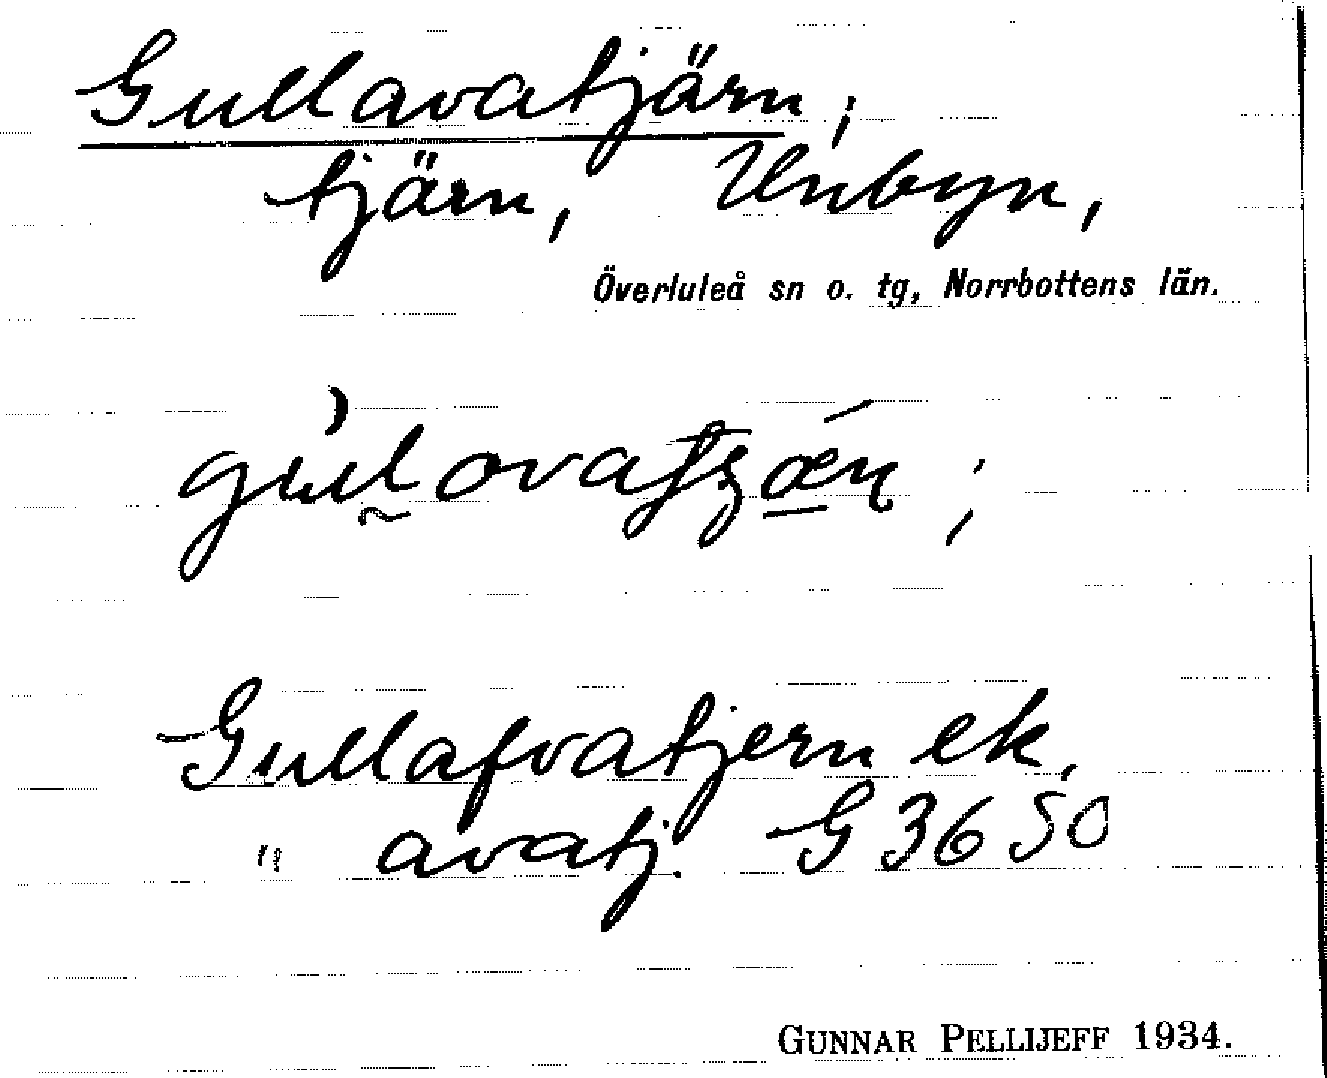 Gullavatjärn;
tjärn, Unbyn,
Överluleå sn o. tg, Norrbottens län.
Gullafvatjern ek.
" avatj. G 3650
GUNNAR PELLIJEFF 1934.